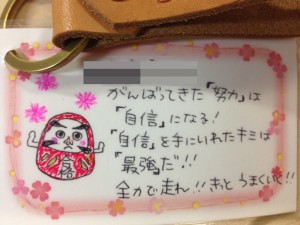 がんばってきた「努力」は
「自信」になる!
「自信」を手にいれたキミは
「最強」だ!!
全力で走れ!!きっとうまくいく!!
合格